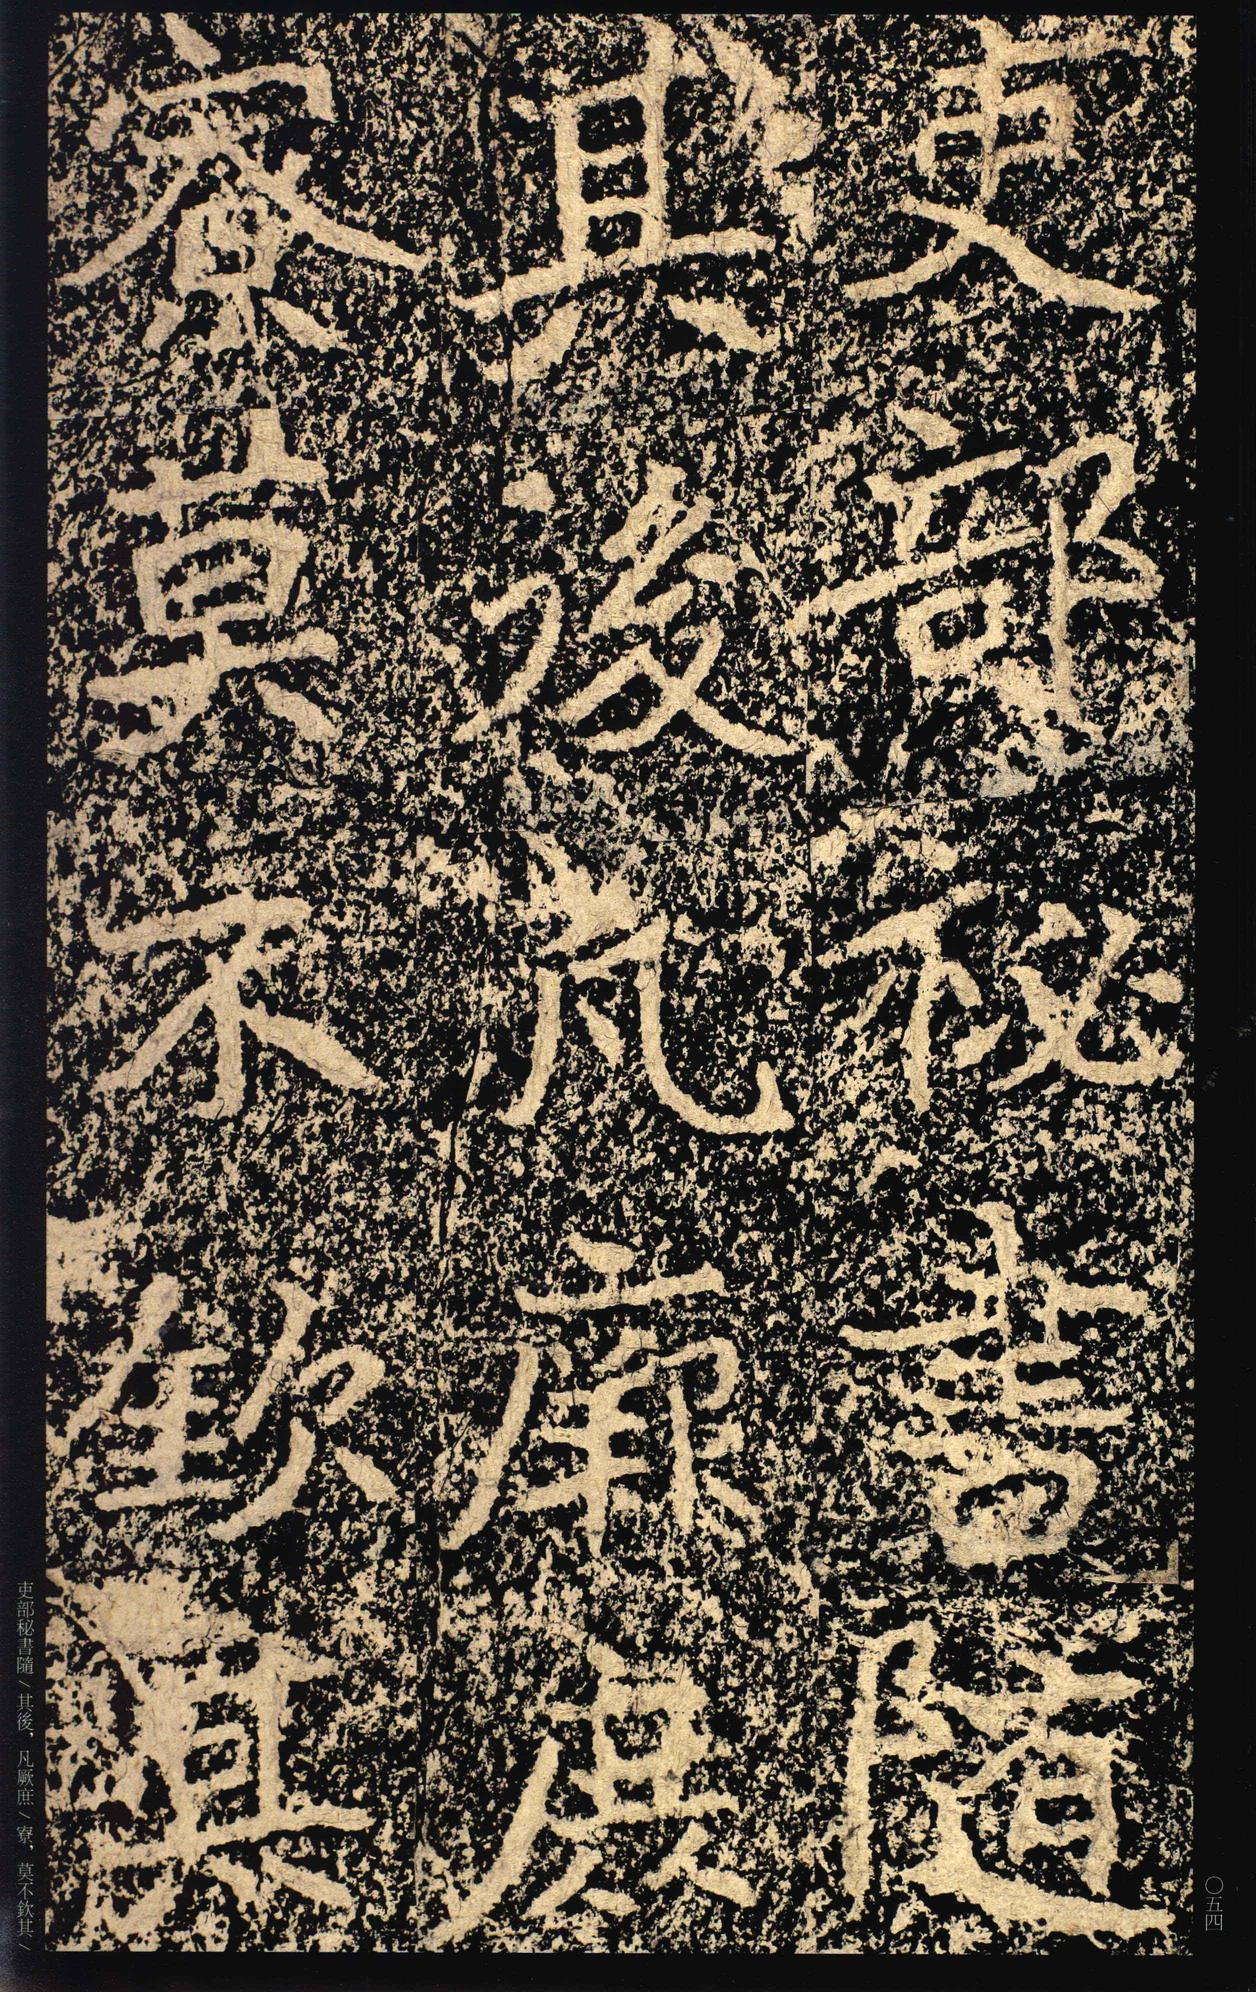 吏部秘書隨
其後凡厥庶
寮莫不欽其
吏部秘書隨/其後，凡厥庶/寮，莫不欽其/
〇五四